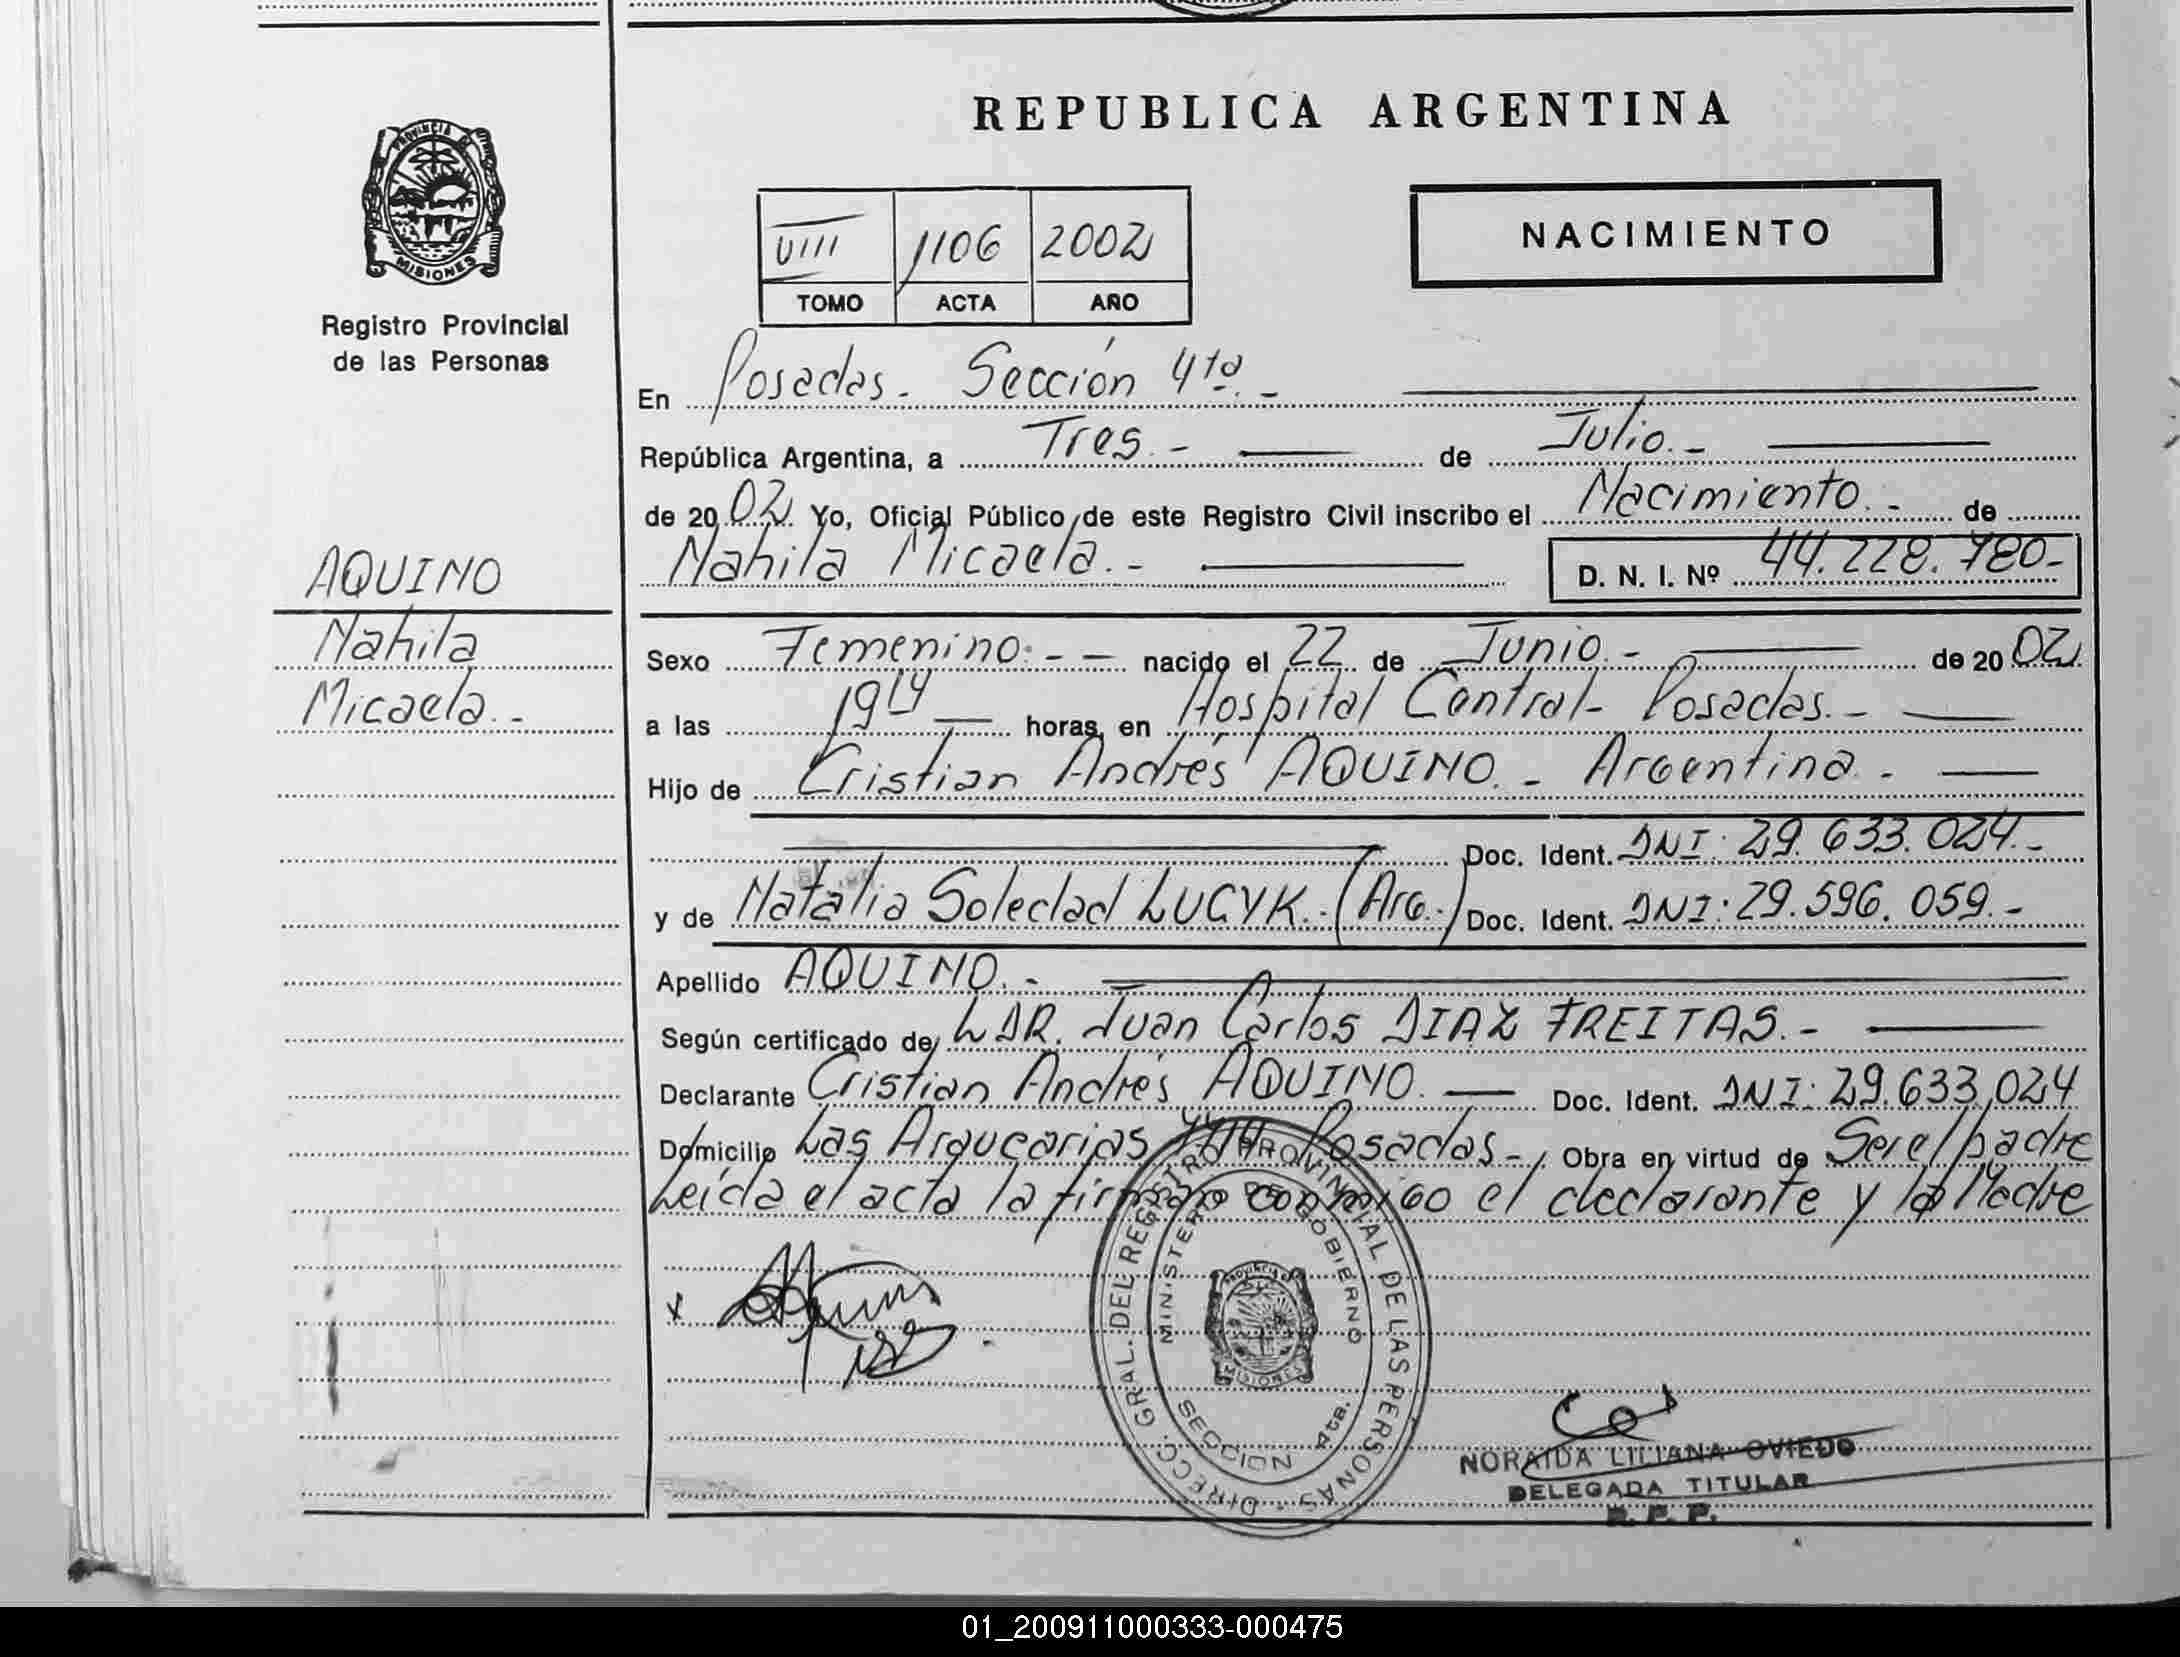 REPUBLICA ARGENTINA
PROVINCIA DE
MISIONES
Registro Provincial
de las Personas
VIII 1106 2002
TOMO ACTA AÑO
NACIMIENTO
En Posadas.- Sección 4ta.-
República Argentina, a Tres.- de Julio.-
de 2002. Yo, Oficial Público de este Registro Civil inscribo el Nacimiento.- de
Nahila Micaela.- D. N. I. Nº 44.228.780-
AQUINO
Nahila
Micaela.-
Sexo Femenino.-- nacido el 22 de Junio.- de 2002
a las 19 horas, en Hospital Central- Posadas.-
Hijo de Cristian Andrés AQUINO.- Argentina.-
Doc. Ident. DNI: 29.633.024.-
y de Natalia Soledad LUCYK.-(Arg.-) Doc. Ident. DNI: 29.596.059.-
Apellido AQUINO.-
Según certificado de LDR. Juan Carlos DIAZ FREITAS.-
Declarante Cristian Andrés AQUINO. Doc. Ident. DNI: 29.633.024
Domicilio Las Araucarias Posadas-, Obra en virtud de Ser el padre
Leída el acta la firman conmigo el declarante y la Madre
x
DIRECC. GRAL. DEL REGISTRO PROVINCIAL DE LAS PERSONAS
MINISTERIO DE GOBIERNO
PROVINCIA DE
MISIONES
SECCION 4ta.
NORAIDA LILIANA OVIEDO
DELEGADA TITULAR
R. P. P.
01_200911000333-000475